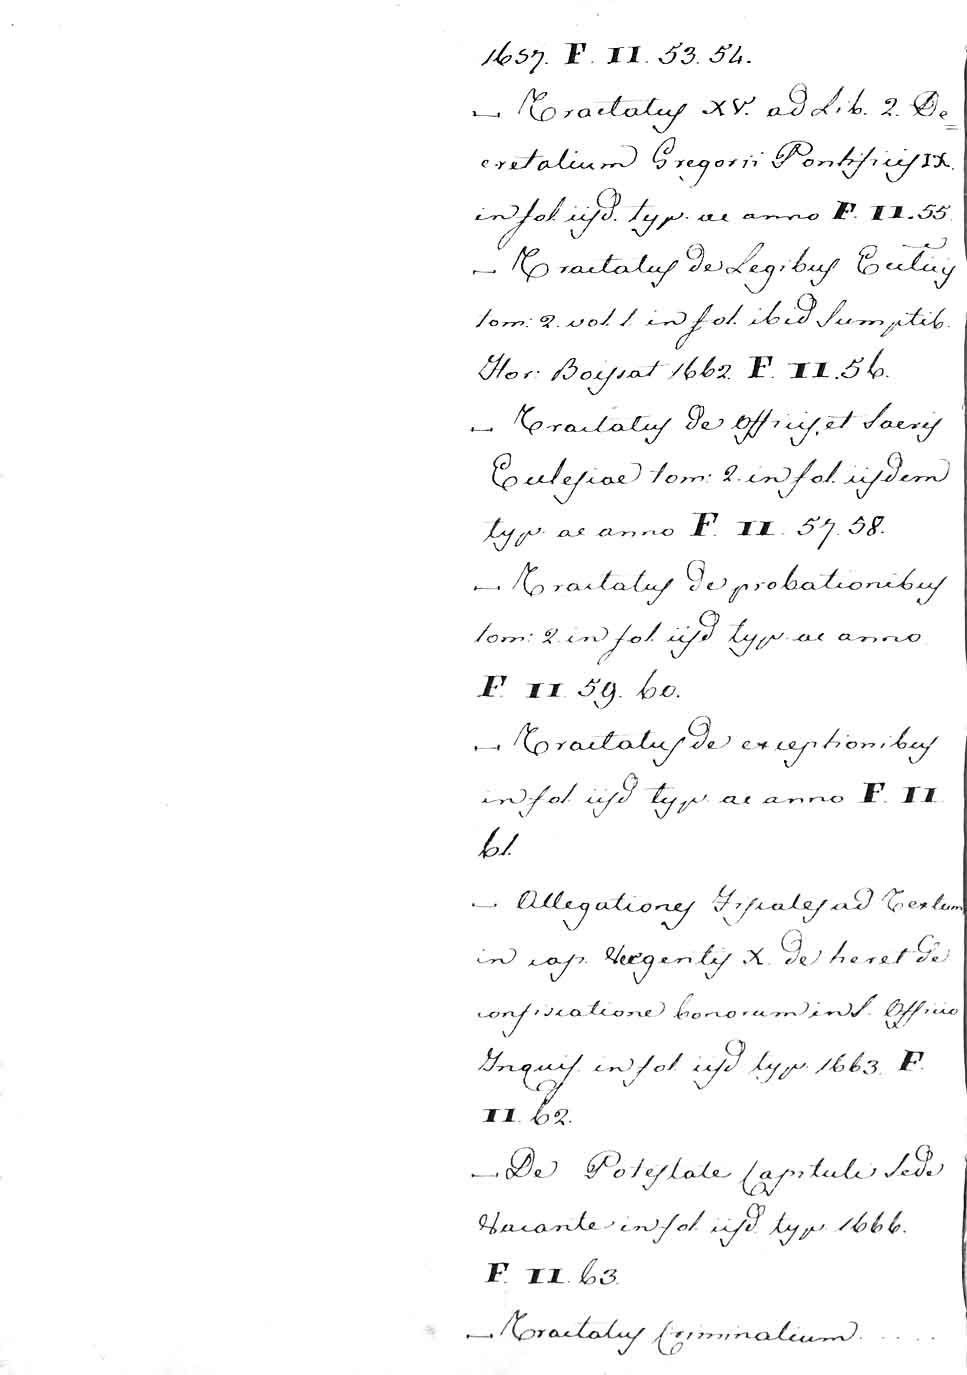 1657. F. II. 53. 54.
— Tractatus XV. ad Lib. 2. De=
cretalium Gregorii Pontificis IX.
in fol. iisd. typ. ac anno F. II. 55.
— Tractatus de Legibus Ecclīis
tom: 2. vol. 1. in fol. ibid Sumptib.
Hor: Boissat 1662. F. II. 56.
— Tractatus de Officiis, et Sacris
Ecclesiae tom: 2. in fol. iisdem
typ. ac anno F. II. 57. 58.
— Tractatus de probationibus
tom: 2. in fol. iisd typ. ac anno
F. II. 59. 60.
— Tractatus de exceptionibus
in fol. iisd typ. ac anno F. II
61.
— Allegationes Fiscales ad Textum
in cap. Vergentis X. de heret de
confiscatione bonorum in S. Officio
Inquis. in fol. iisd typ. 1663. F.
II. 62.
— De Potestate Capituli Sede
Vacante in fol. iisd. typ. 1666.
F. II. 63.
— Tractatus Criminalium . . . . .